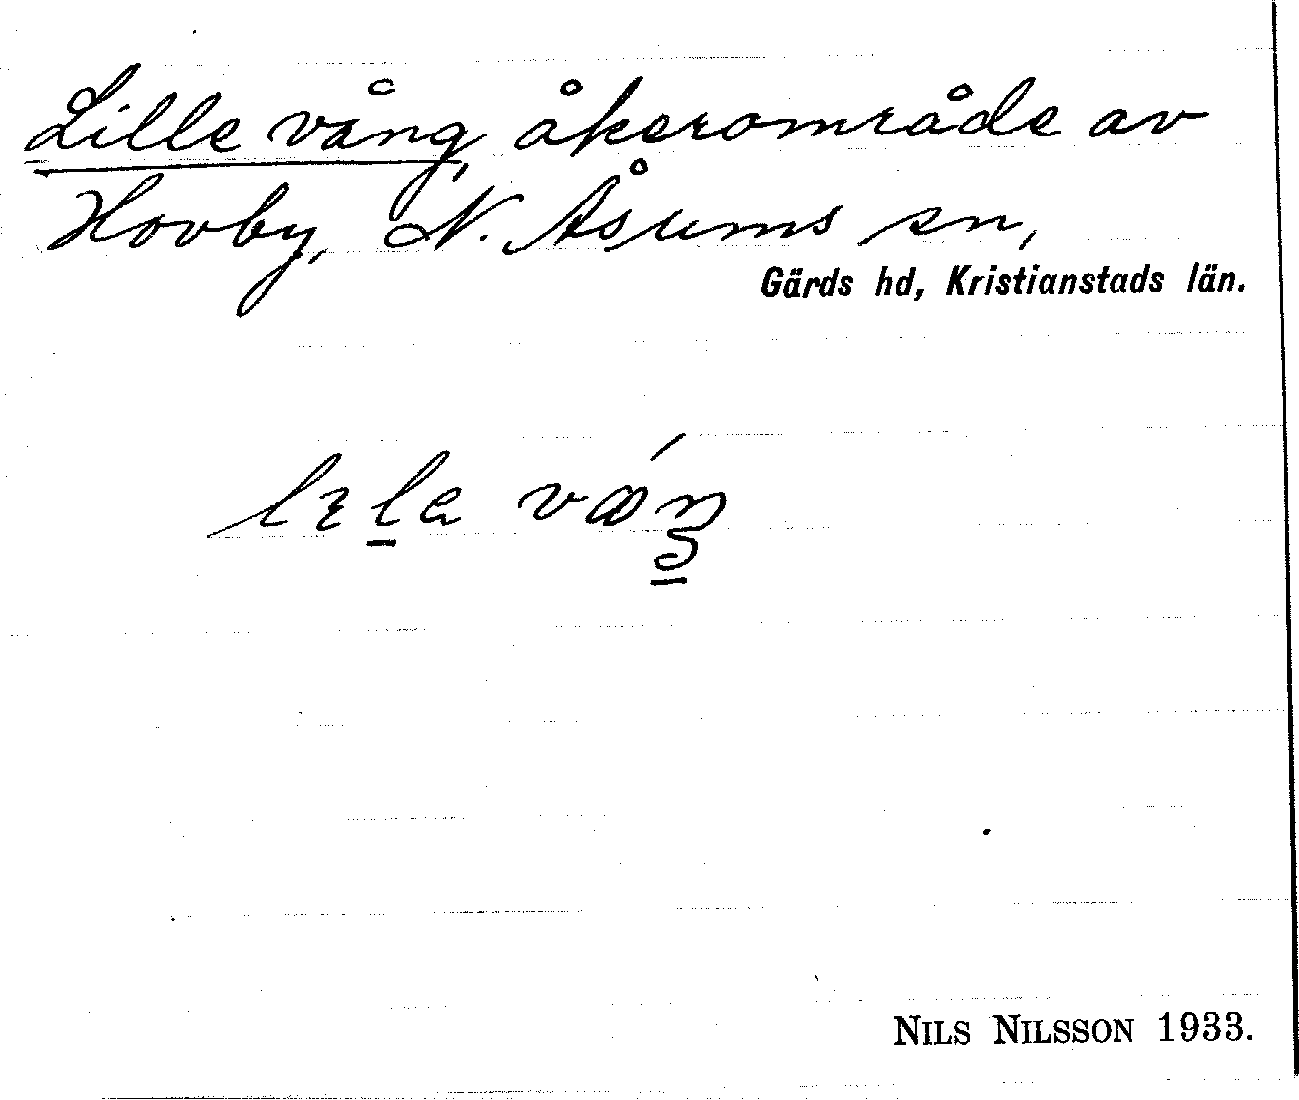 Lille vång, åkerområde av
Hovby, N. Åsums sn,
Gärds hd, Kristianstads län.
NILS NILSSON 1933.